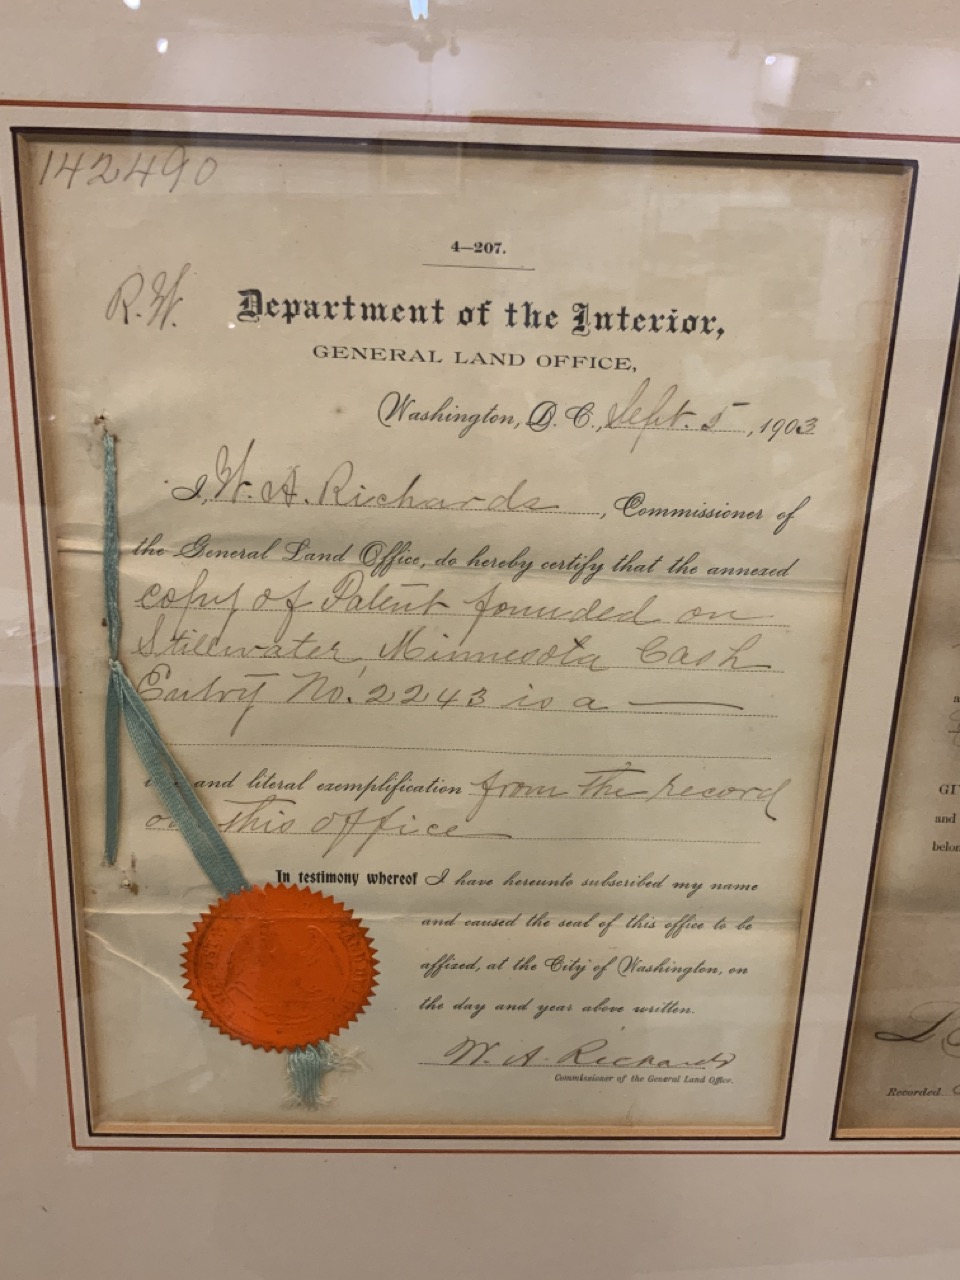 142490
4—207.
R.W.
Department of the Interior,
GENERAL LAND OFFICE,
Washington, D. C., Sept. 5, 1903
I, W. A. Richards, Commissioner of
the General Land Office, do hereby certify that the annexed
copy of Patent founded on
Stillwater, Minnesota Cash
Entry No. 2243 is a
and literal exemplification from the record
this office
In testimony whereof I have hereunto subscribed my name
and caused the seal of this office to be
affixed, at the City of Washington, on
the day and year above written.
W. A. Richards
Commissioner of the General Land Office.
GI
and
belon
Recorded